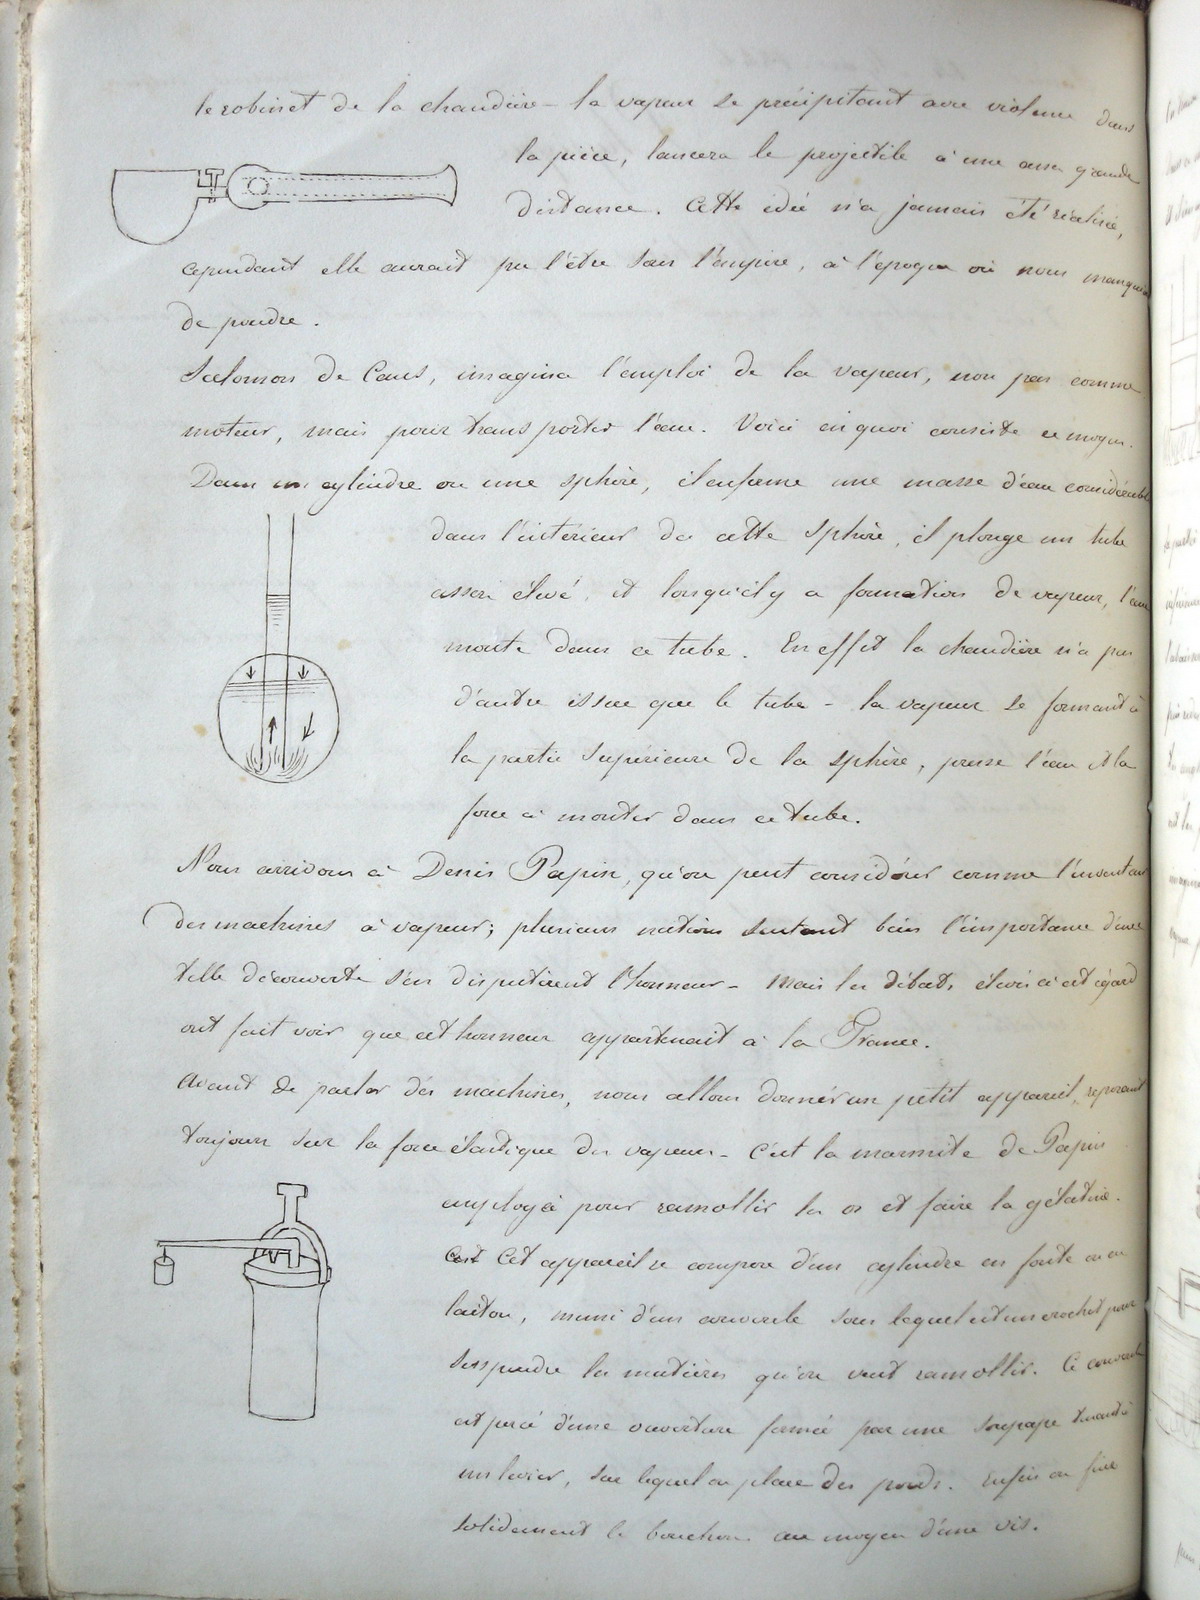 le robinet de la chaudière - la vapeur se précipitant avec violence dans
la pièce, lancera le projectile à une assez grande
distance. Cette idée n'a jamais été réalisée,
cependant elle aurait pu l'être sous l'empire, à l'époque où nous manquions
de poudre.
Salomon de Caus, imagina l'emploi de la vapeur, non pas comme
moteur, mais pour transporter l'eau. Voici en quoi consiste ce moyen.
Dans un cylindre ou une sphère, il enferme une masse d'eau considérable
dans l'intérieur de cette sphère, il plonge un tube
assez élevé, et lorsqu'il y a formation de vapeur, l'eau
monte dans ce tube. En effet la chaudière n'a pas
d'autre issue que le tube - la vapeur se formant à
la partie supérieure de la sphère, presse l'eau et la
force à monter dans ce tube.
Nous arrivons à Denis Papin, qu'on peut considérer comme l'inventeur
des machines à vapeur; plusieurs nations sentant bien l'importance d'une
telle découverte s'en disputèrent l'honneur - Mais les débats, élevés à cet égard
ont fait voir que cet honneur appartenait à la France.
Avant de parler des machines, nous allons donner un petit appareil, reposant
toujours sur la force élastique des vapeurs - C'est la marmite de Papin
employée pour ramollir les os et faire la gélatine.
Cet appareil se compose d'un cylindre en fonte ou en
laiton, muni d'un couvercle sous lequel est un crochet pour
suspendre les matières qu'on veut ramollir. Ce couvercle
est percé d'une ouverture fermée par une soupape
un levier, sur lequel on place des poids. Enfin on fixe
solidement le bouchon au moyen d'une vis.